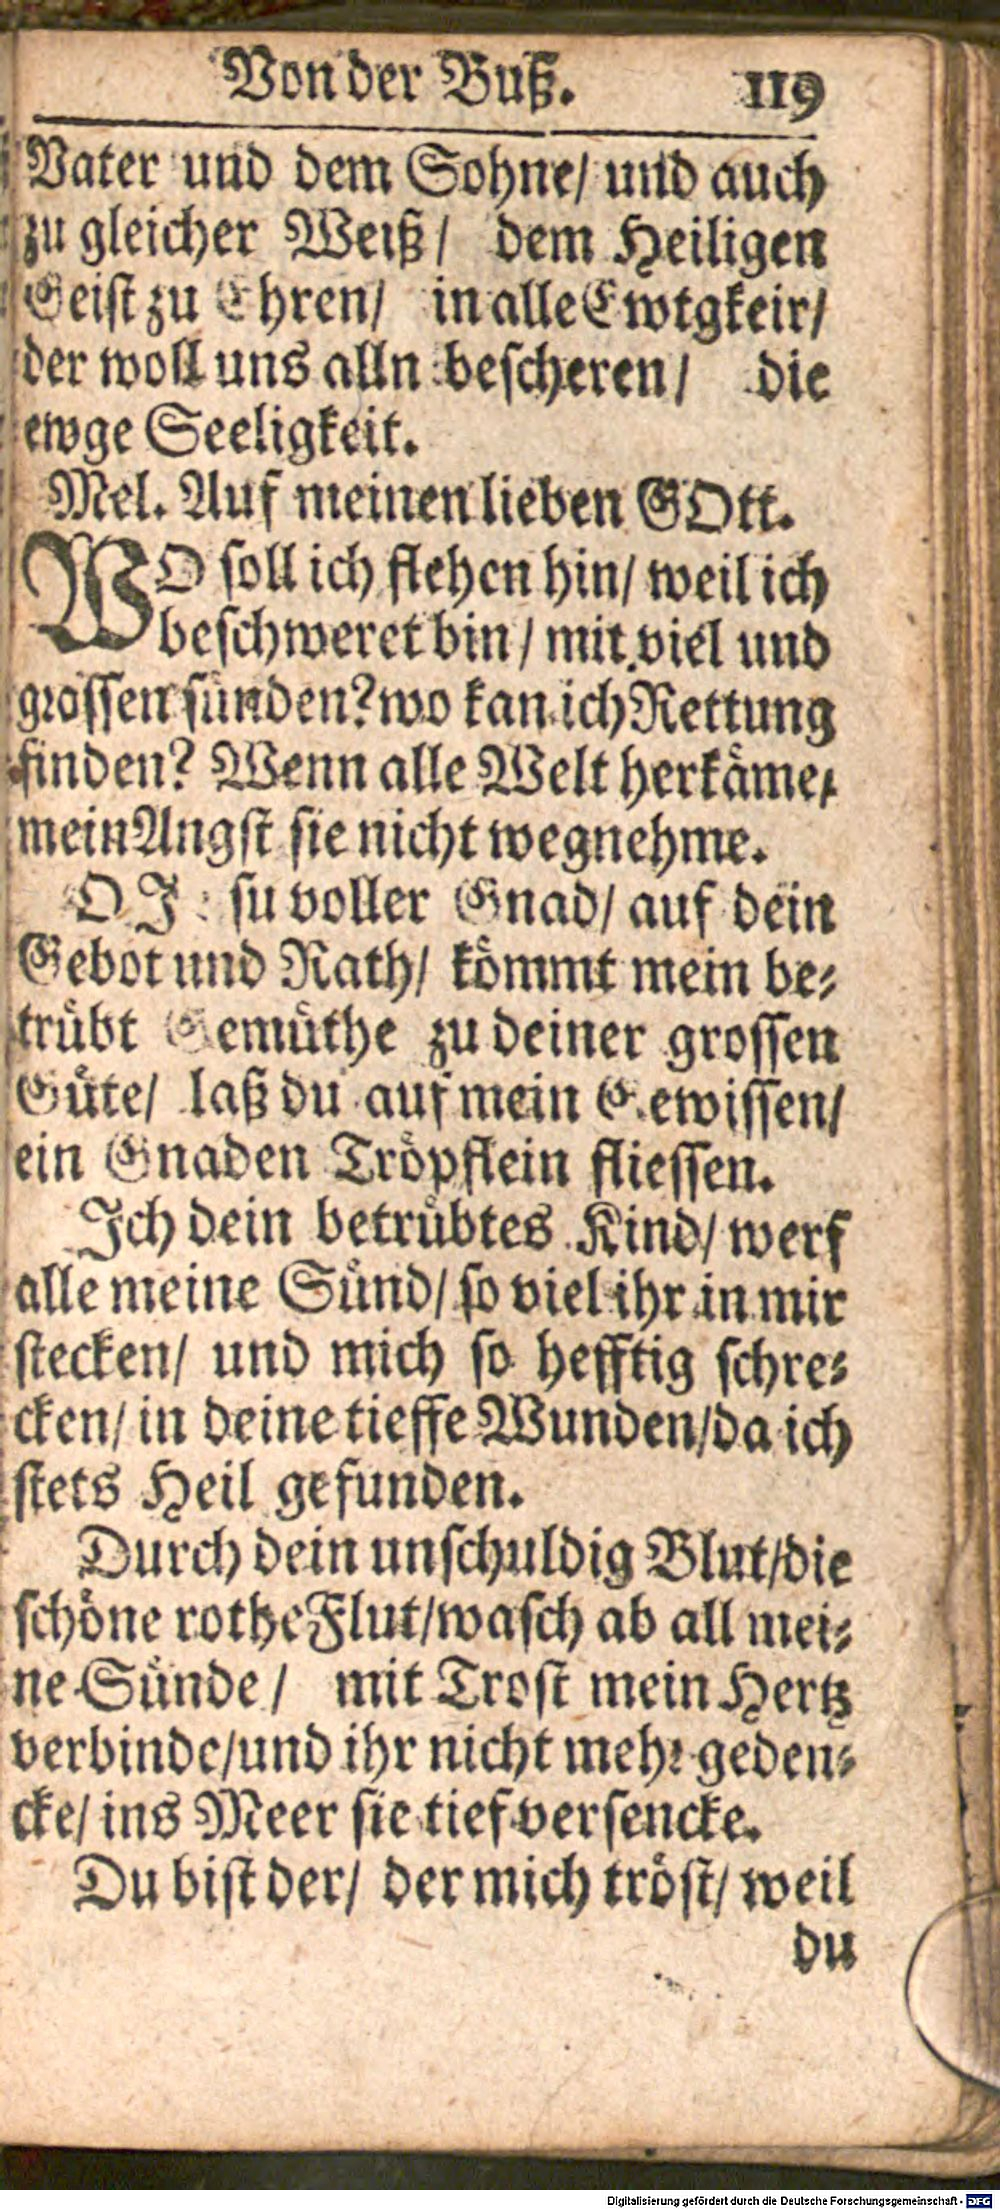 Von der Buß. 119
Vater und dem Sohne/ und auch
zu gleicher Weiß/ dem Heiligen
Geist zu Ehren/ in alle Ewtgkeir/
der woll uns alln bescheren/ die
ewge Seeligkeit.
Mel. Auf meinen lieben GOtt.
WO soll ich flehen hin/ weil ich
beschweret bin/ mit viel und
grossen sünden? wo kan ich Rettung
finden? Wenn alle Welt herkäme/
mein Angst sie nicht wegnehme.
O J su voller Gnad/ auf dein
Gebot und Rath/ kömmt mein be-
trübt Gemüthe zu deiner grossen
Güte/ laß du auf mein Gewissen/
ein Gnaden Tröpflein fliessen.
Ich dein betrübtes Kind/ werf
alle meine Sünd/ so viel ihr in mir
stecken/ und mich so hefftig schre-
cken/ in deine tieffe Wunden/ da ich
stets Heil gefunden.
Durch dein unschuldig Blut/ die
schöne rothe Flut/ wasch ab all mei-
ne Sünde/ mit Trost mein Hertz
verbinde/ und ihr nicht mehr geden-
cke/ ins Meer sie tief versencke.
Du bist der/ der mich tröst/ weil
du
Digitalisierung gefördert durch die Deutsche Forschungsgemeinschaft - DFG